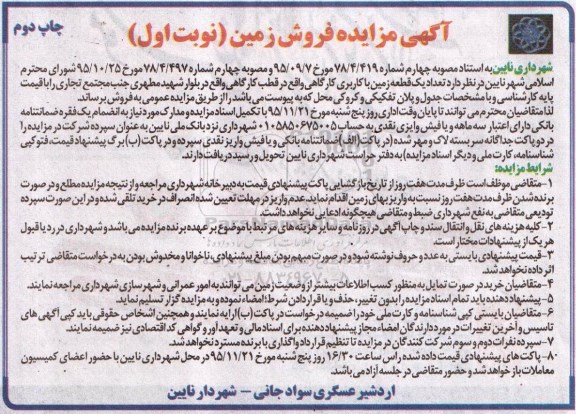 آگهی مزایده فروش زمین (نوبت اول)
چاپ دوم
شهرداری نایین به استناد مصوبه چهارم شماره ۷۸/۴/۴۱۹ مورخ ۹۵/۰۹/۷ و مصوبه چهارم شماره ۷۸/۴/۴۹۷ مورخ ۹۵/۱۰/۲۵ شورای محترم
اسلامی شهر نایین در نظر دارد تعداد یک قطعه زمین با کاربری کارگاهی واقع در قطب کارگاهی واقع در بلوار شهید مطهری جنب مجتمع تجاری را با قیمت
پایه کارشناسی و با مشخصات جدول و پلان تفکیکی و کروکی محل که به پیوست می باشد را از طریق مزایده عمومی به فروش برساند.
لذا متقاضیان محترم می توانند تا پایان وقت اداری روز پنج شنبه مورخ ۹۵/۱۱/۲۱ با تکمیل اسناد مزایده و مدارک مورد نیاز به انضمام یک فقره ضمانتنامه
بانکی دارای اعتبار سه ماهه و یا فیش واریز نقدی به حساب ۰۱۰۵۸۸۵۰۶۷۵۰۰۵ شهرداری نزد بانک ملی نایین به عنوان سپرده شرکت در مزایده را
در دو پاکت جداگانه سربسته لاک و مهر شده (در پاکت(الف) ضمانتنامه بانکی و یا فیش واریز نقدی سپرده و در پاکت (ب) برگ پیشنهاد قیمت، فتوکپی
شناسنامه، کارت ملی و دیگر اسناد مزایده) به دفتر حراست شهرداری نایین تحویل و رسید دریافت دارند.
شرایط مزایده:
۱- متقاضی موظف است ظرف مدت هفت روز از تاریخ بازگشایی پاکت پیشنهادی قیمت به دبیرخانه شهرداری مراجعه و از نتیجه مزایده مطلع و در صورت
برنده شدن ظرف مدت هفت روز نسبت به واریز بهای زمین اقدام نماید. عدم واریز در مهلت تعیین شده انصراف در خرید تلقی شده و در این صورت سپرده
تودیعی متقاضی به نفع شهرداری ضبط و متقاضی هیچگونه ادعایی نخواهد داشت.
۲- کلیه هزینه های نقل و انتقال سند و چاپ آگهی در روزنامه و سایر هزینه های مرتبط با موضوع بر عهده برنده مزایده می باشد و شهرداری در رد یا قبول
هر یک از پیشنهادات مختار است.
۳- قیمت پیشنهادی بایستی به عدد و حروف نوشته شود و در صورت مبهم بودن مبلغ پیشنهادی، ناخوانا و مخدوش بودن به درخواست متقاضی ترتیب
اثر داده نخواهد شد.
۴- متقاضیان خرید در صورت تمایل به منظور کسب اطلاعات بیشتر از وضعیت زمین می توانند به امور عمرانی و شهرسازی شهرداری مراجعه نمایند.
۵- پیشنهاد دهنده باید تمام اسناد مزایده را بدون تغییر، حذف و یا قرار دادن شرط؛ امضاء نموده و به مزایده گزار تسلیم نماید.
۶- متقاضیان بایستی کپی شناسنامه و کارت ملی خود را ضمیمه درخواست در پاکت (ب) ارایه نمایند و همچنین اشخاص حقوقی باید کپی آگهی های
تاسیس و آخرین تغییرات در مورد دارندگان امضاء مجاز پیشنهاد دهنده برای اسناد مالی و تعهدآور و گواهی کد اقتصادی نیز ضمیمه نمایند.
۷- سپرده نفرات دوم و سوم شرکت کنندگان در مزایده تا تنظیم قرارداد واگذاری با برنده مسترد نخواهد شد.
۸- پاکت های پیشنهادی قیمت داده شده راس ساعت ۱۶/۳۰ روز پنج شنبه مورخ ۹۵/۱۱/۲۱ در محل شهرداری نایین با حضور اعضای کمیسیون
معاملات باز خواهد شد و حضور متقاضی در جلسه آزاد می باشد.
اردشیر عسگری سواد جانی - شهردار نایین